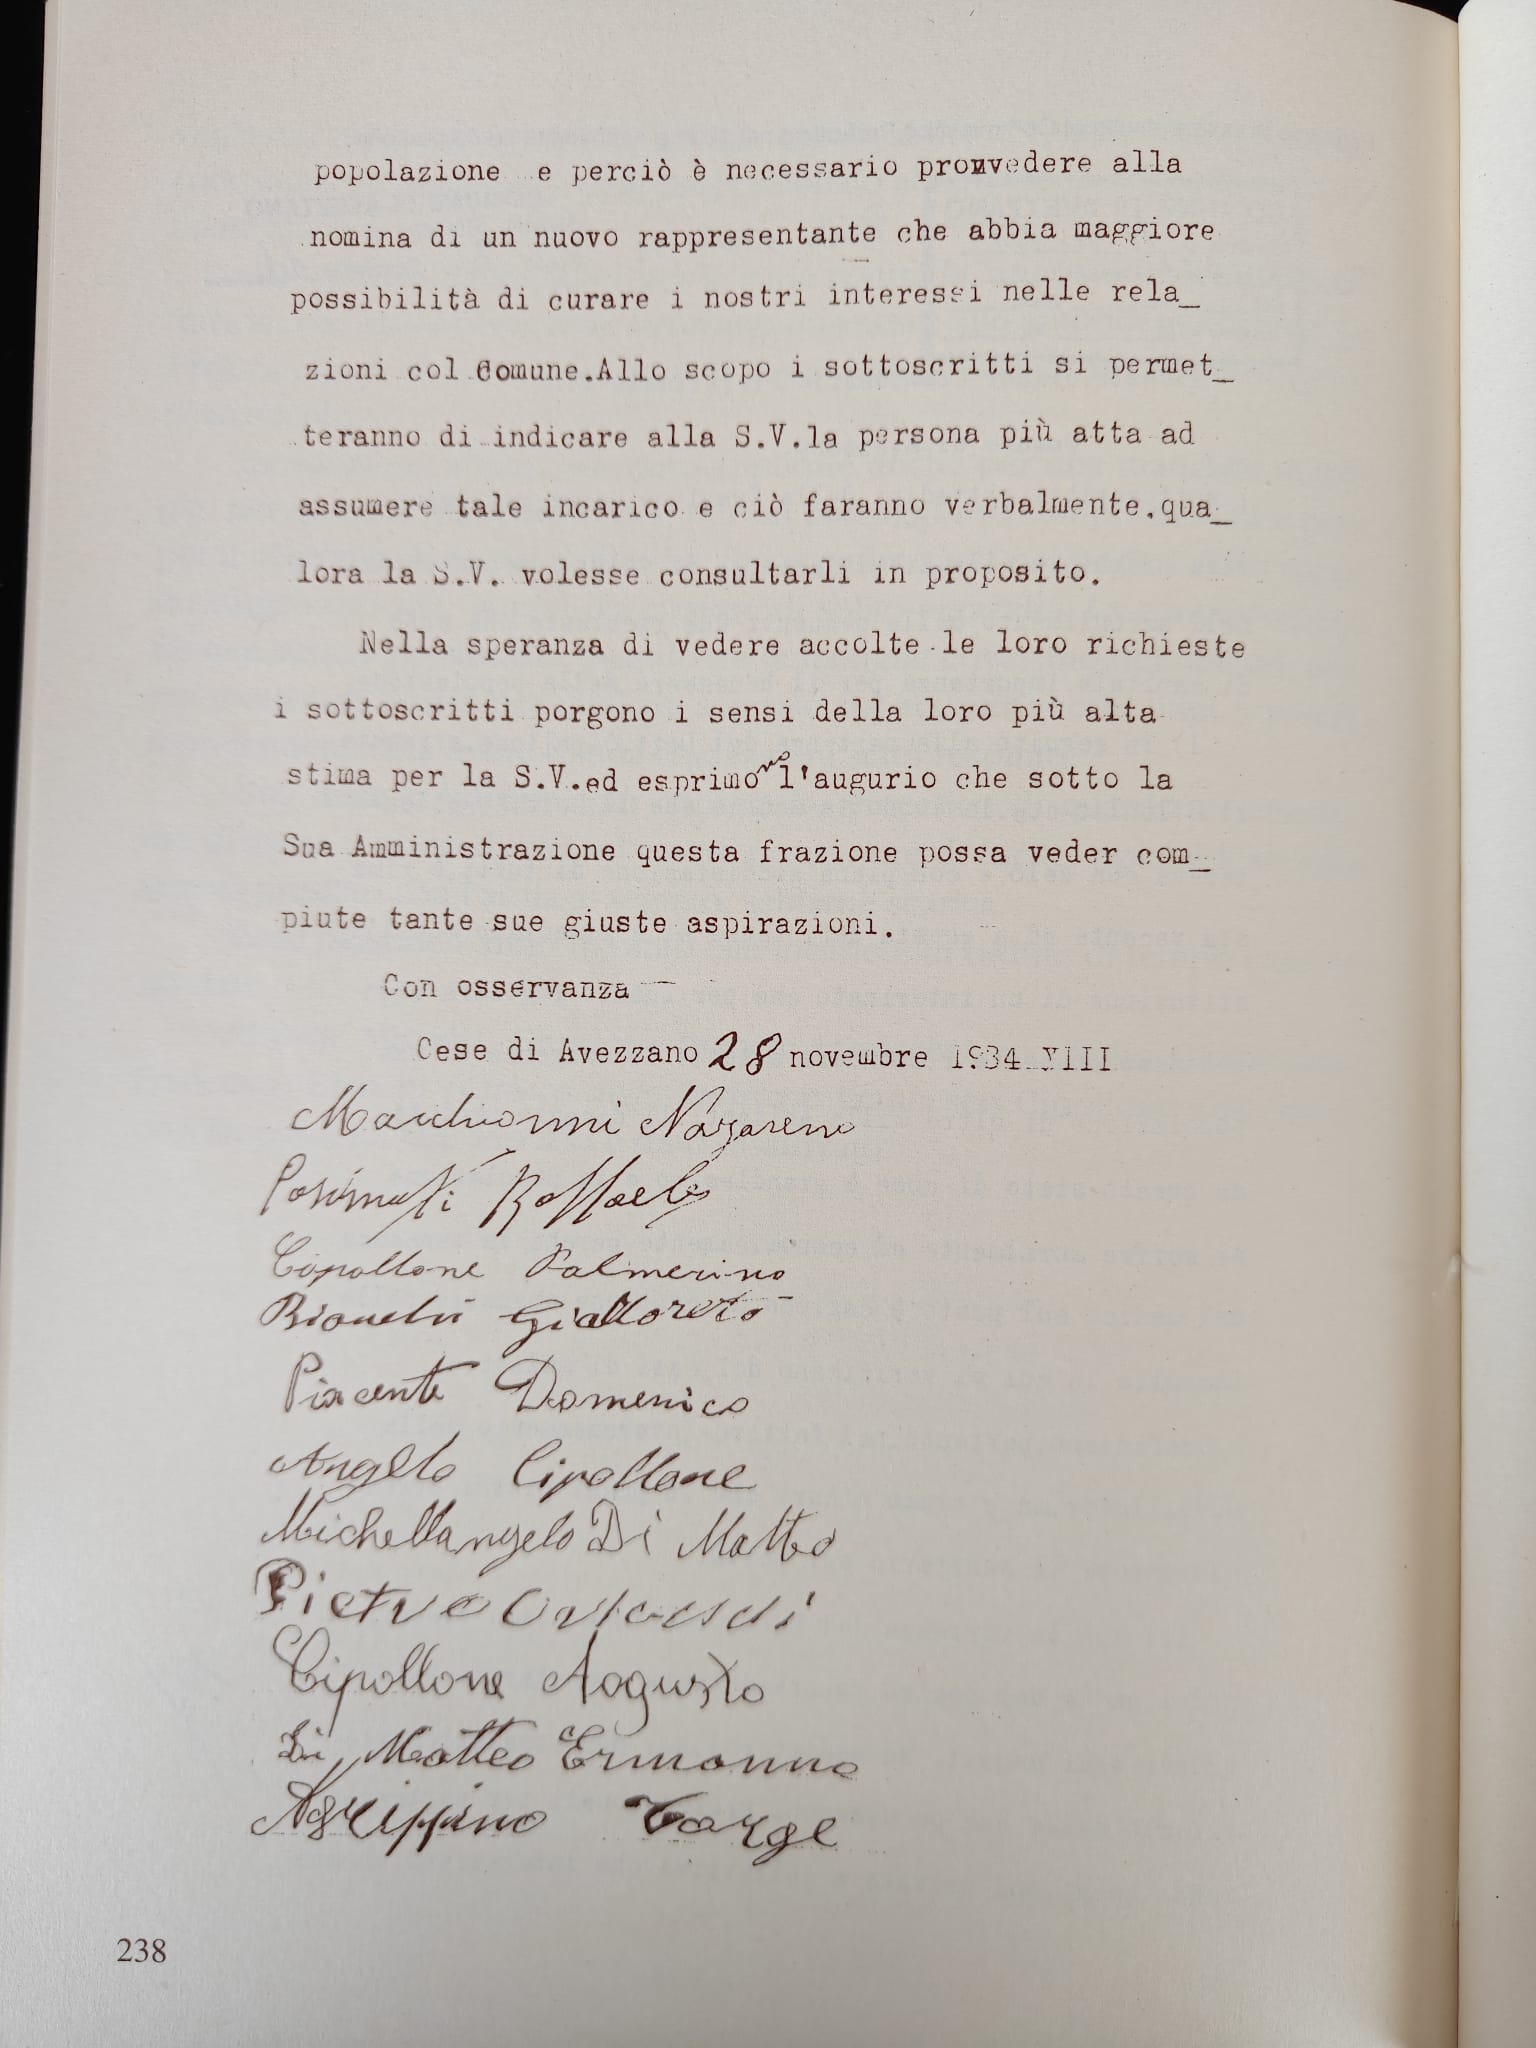 popolazione e perciò è necessario provvedere alla
nomina di un nuovo rappresentante che abbia maggiore
possibilità di curare i nostri interessi nelle rela_
zioni col Comune.Allo scopo i sottoscritti si permet_
teranno di indicare alla S.V.la persona più atta ad
assumere tale incarico e ciò faranno verbalmente.qua_
lora la S.V. volesse consultarli in proposito.
Nella speranza di vedere accolte le loro richieste
i sottoscritti porgono i sensi della loro più alta
stima per la S.V.ed esprimono l'augurio che sotto la
Sua Amministrazione questa frazione possa veder com_
piute tante sue giuste aspirazioni.
Con osservanza
Cese di Avezzano 28 novembre 1934 XIII
Marchionni Nazareno
Raffaele
Cipollone Palmerino
Bianchi Gialloreto
Piacente Domenico
Angelo Cipollone
Michellangelo Di Matteo
Pietro
Cipollone Aogusto
Di Matteo Ermanno
Agrippino Torge
238